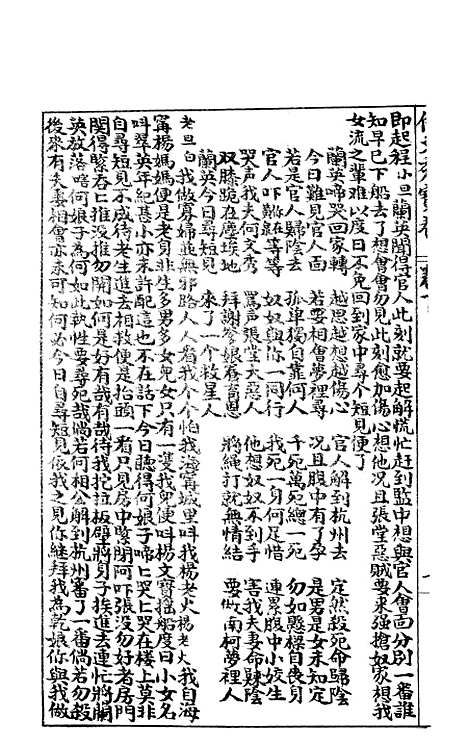 即起程小旦蘭英聞得官人此刻就要起解慌忙赶到監中想與官人會面分別一番誰
知早已下船去了想會會勿見此刻愈加傷心想他况且張堂惡賊要來强搶奴家想我
女流之輩难以度日不免回到家中尋个短見便了
蘭英啼哭回家轉　越思越想越傷心　官人解到杭州去　定然殺死命歸陰
今日難見官人面　若要相會夢裡尋　况且腹中有了孕　是男是女未知定
若是官人歸陰去　孤单獨自靠何人　千死萬死總一死　勿如懸樑自喪身
官人吓　奴奴與你一同行　我死一身何足惜　連累腹中小姣生
哭声我夫何文秀　罵声張堂大惡人　他想奴奴不到手　害我夫妻命歸陰
双膝跪在塵埃地　拜謝爹娘養育恩　將繩打就無情結　要做南柯夢裡人
蘭英今日尋短見　來了一个救星人
老旦白我做寡婦並無邪路人人看我个个怕我海寗城里叫我楊老火楊老火我自海
寗楊媽媽便是老身非生多男多女兒女只有一雙我兒便叫楊文寶搖船度日小女名
叫翠英年紀甚小亦未許配這也不在話下今日聽得何娘子啼哭哭在楼上莫非
自尋短見不成待老生進去相救便是抬頭一看只見房中緊閉阿吓張没勿好老房門
関得緊吞推没推勿開如何是好有哉有哉待我挖拉板壁將身子挨進去連忙將蘭
英放落哈何娘子為何如此執性要尋死哉倘若何相公解到杭州審了一番倘若勿殺
後來有夫妻相會亦未可知何必今日自尋短見依我之見你継拜我為乾娘你與我做